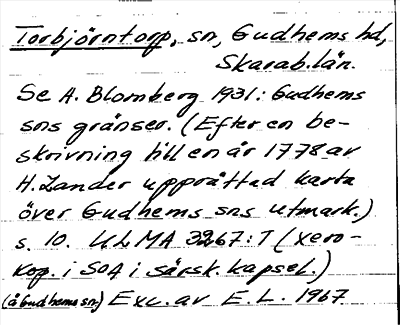 Torbjörntorp, sn, Gudhems hd,
Skarab.län.
Se A. Blomberg 1931: Gudhems
sns gränser. (Efter en be-
skrivning till en år 1778 av
H. Zander upprättad karta
över Gudhems sns utmark.)
s. 10. ULMA 3267:7 (xero-
kop. i SOA i särsk. kapsel.)
(å Gudhems sn) Exc. av E. L. 1967